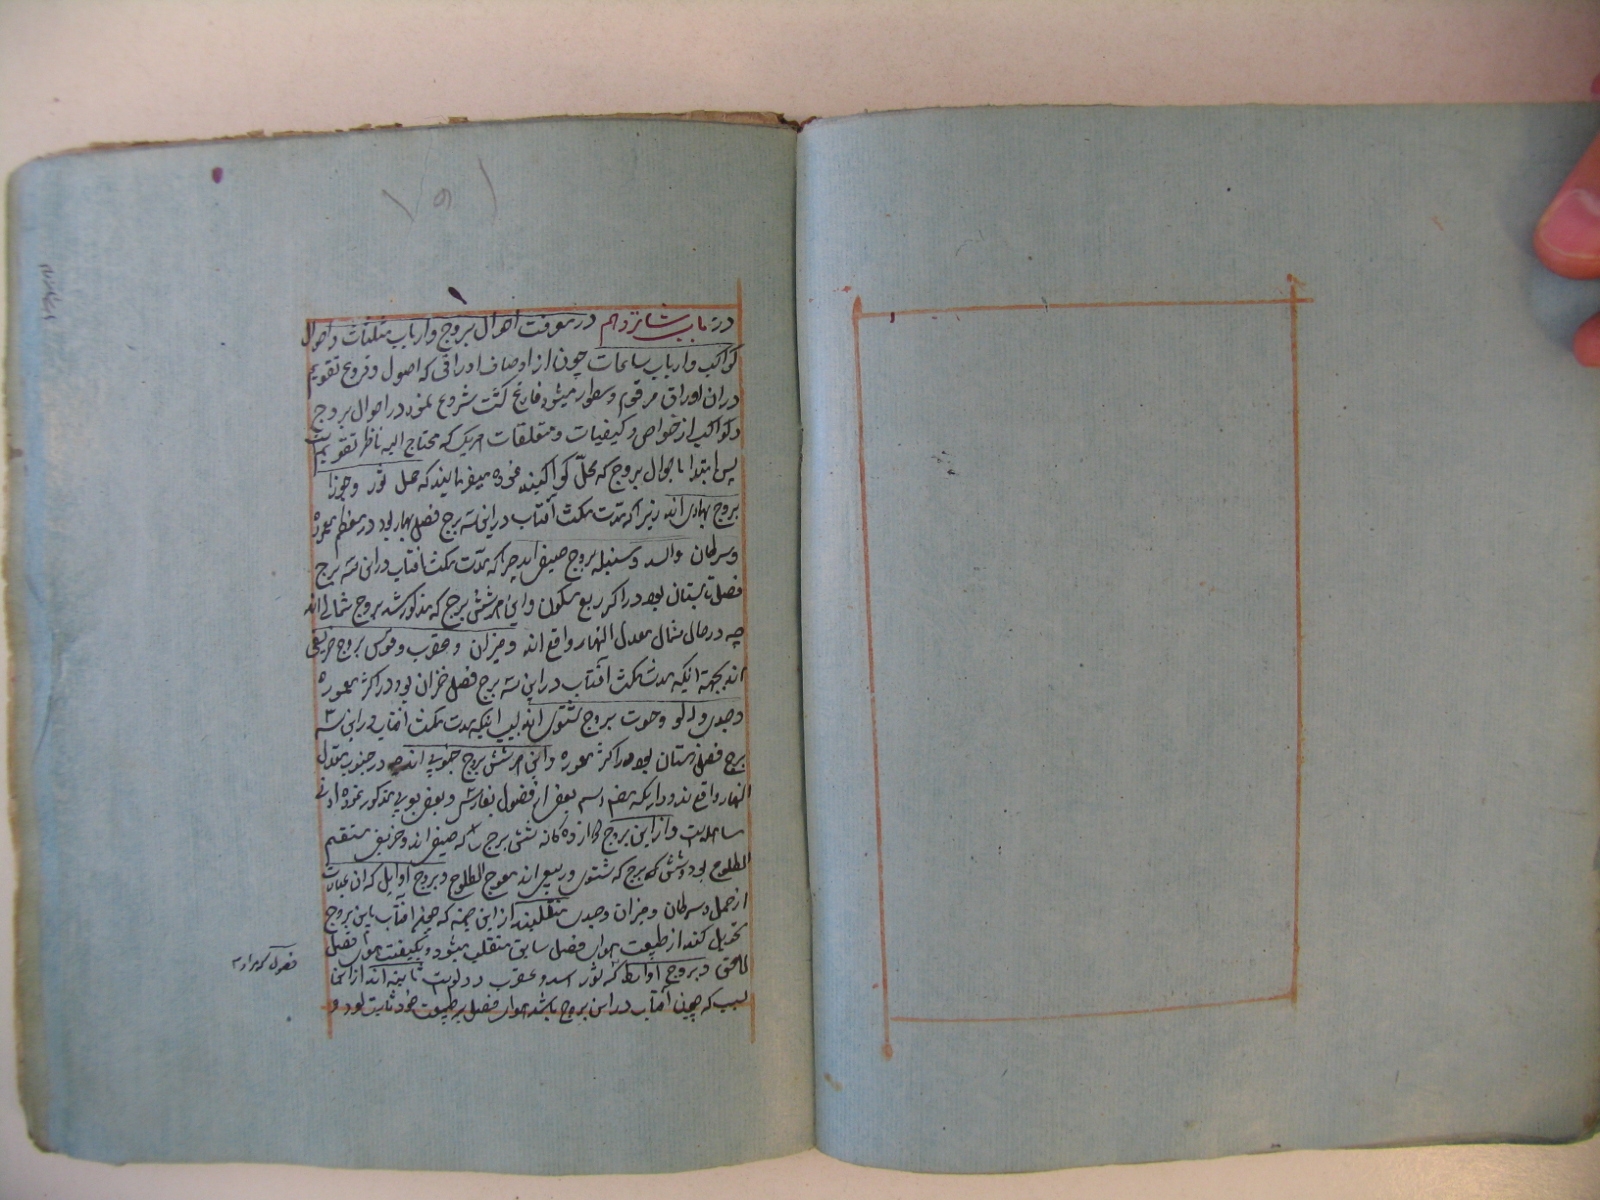 در باب شانزدهم در معرفت احوال بروج و ارباب مثلثات و احوال
کواکب و ارباب ساعات چون از اوصاف اوراقی که اصول و فروع تقویم
در ان اوراق مرقوم و مسطور میشود فارغ گشت شروع نمود در احوال بروج
و کواکب از خواص و کیفیات و متعلقات هریک که محتاج الیه ناظر تقویم
پس ابتدا باحوال بروج که محل کواکبند نموده میفرمایند که حمل ثور و جوزا
بروج بهاری اند زیرا که مدت مکث آفتاب در این سه برج فصل بهار بود در معظم معموره
و سرطان و اسد و سنبله بروج صیفی اند چرا که مدت مکث افتاب در این سه برج
فصل تابستان بود در اکثر ربع مسکون و این هر شش برج که مذکور شد بروج شمالی اند
چه در حال شمال معدل النهار واقع اند و میزان و عقرب و قوس بروج خریفی
اند بجهة انیکه مدت مکث آفتاب در این سه برج فصل خزان بود در اکثر معموره
و جدی و دلو و حوت بروج شتوی اند بسبب انیکه مدت مکث افتاب در این سه
برج فصل زمستان بود در اکثر معموره و این هر شش بروج جنوبی اند در جنوب معدل
النهار واقع اسم بعض از فصول بفارسی و بعض بعربی مذکور نموده
و از این بروج دوازده کانه شش برج را که صیفی اند و خریفی مستقیم
الطلوع بود و شش برج که شتوی و ربیعی اند معوج الطلوع و بروج اوایل که ان عبارت
از حمل و سرطان و میزان و جدی منقلبند از این جهة که چونکه افتاب باین بروج
تحویل کند از طبیعت هوای فصل سابق منقلب میشود و بکیفیت هوای فصل
لاحق و بروج اواسط که ثور اسد و عقرب و دلویت ثابته اند از انجا
سبب که چون آفتاب در این بروج باشد هوای فصل بر طبیعت خود ثابت بود و